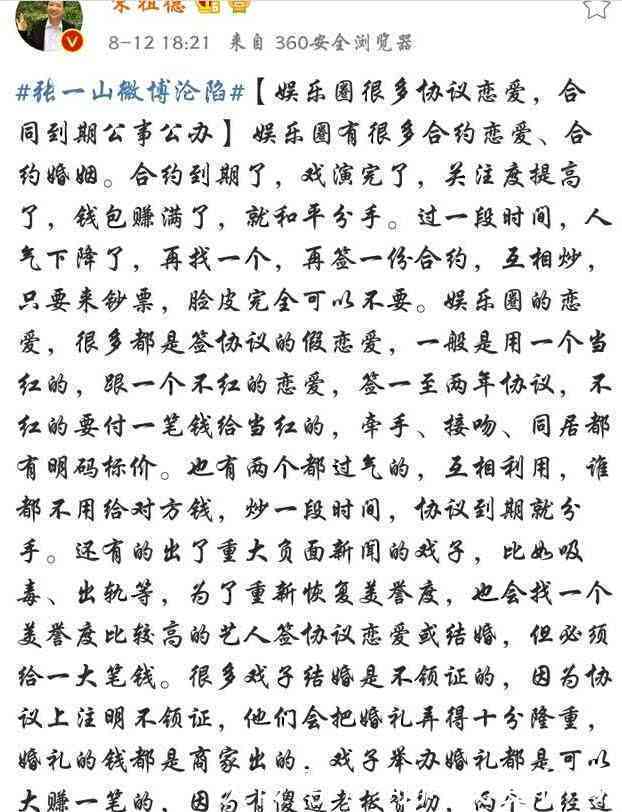 宋祖德
8-12 18:21 来自 360安全浏览器
#张一山微博沦陷#【娱乐圈很多协议恋爱，合
同到期公事公办】娱乐圈有很多合约恋爱、合
约婚姻。合约到期了，戏演完了，关注度提高
了，钱包赚满了，就和平分手。过一段时间，人
气下降了，再找一个，再签一份合约，互相炒，
只要来钞票，脸皮完全可以不要。娱乐圈的恋
爱，很多都是签协议的假恋爱，一般是用一个当
红的，跟一个不红的恋爱，签一至两年协议，不
红的要付一笔钱给当红的，牵手、接吻、同居都
有明码标价。也有两个都过气的，互相利用，谁
都不用给对方钱，炒一段时间，协议到期就分
手。还有的出了重大负面新闻的戏子，比如吸
毒、出轨等，为了重新恢复美誉度，也会找一个
美誉度比较高的艺人签协议恋爱或结婚，但必须
给一大笔钱。很多戏子结婚是不领证的，因为协
议上注明不领证，他们会把婚礼弄得十分隆重，
婚礼的钱都是商家出的．戏子举办婚礼都是可以
大赚一笔的，因为有傻逼老板赞助，两个已经过